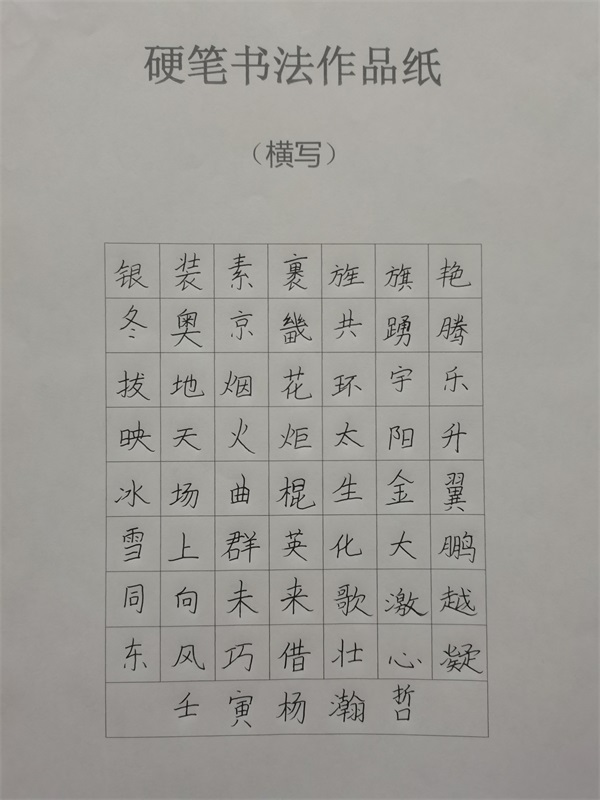 硬笔书法作品纸
（横写）
银装素裹旌旗艳
冬奥京畿共踴腾
拔地烟花环宇乐
映天火炬太阳升
冰场曲棍生金翼
雪上群英化大鹏
同向未来歌激越
东风巧借壮心凝
壬寅杨瀚哲